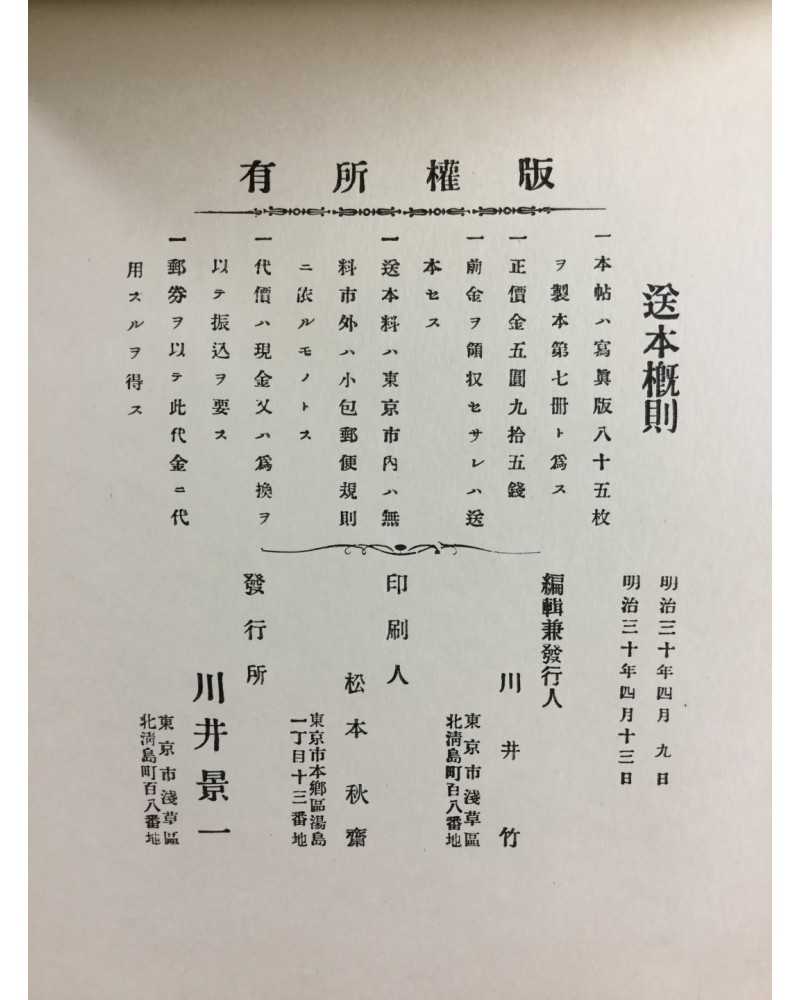 版權所有
送本概則
一本帖ハ寫眞版八十五枚
ヲ製本第七冊ト爲ス
一正價金五圓九拾五錢
一前金ヲ領収セサレハ送
本セス
一送本料ハ東京市內ハ無
料市外ハ小包郵便規則
ニ依ルモノトス
一代價ハ現金又ハ爲換ヲ
以テ振込ヲ要ス
一郵券ヲ以テ此代金ニ代
用スルヲ得ス
明治三十年四月九日
明治三十年四月十三日
編輯兼發行人
川井竹
東京市淺草區
北淸島町百八番地
印刷人
松本秋齋
東京市本鄕區湯島
一丁目十三番地
發行所
川井景一
東京市淺草區
北淸島町百八番地